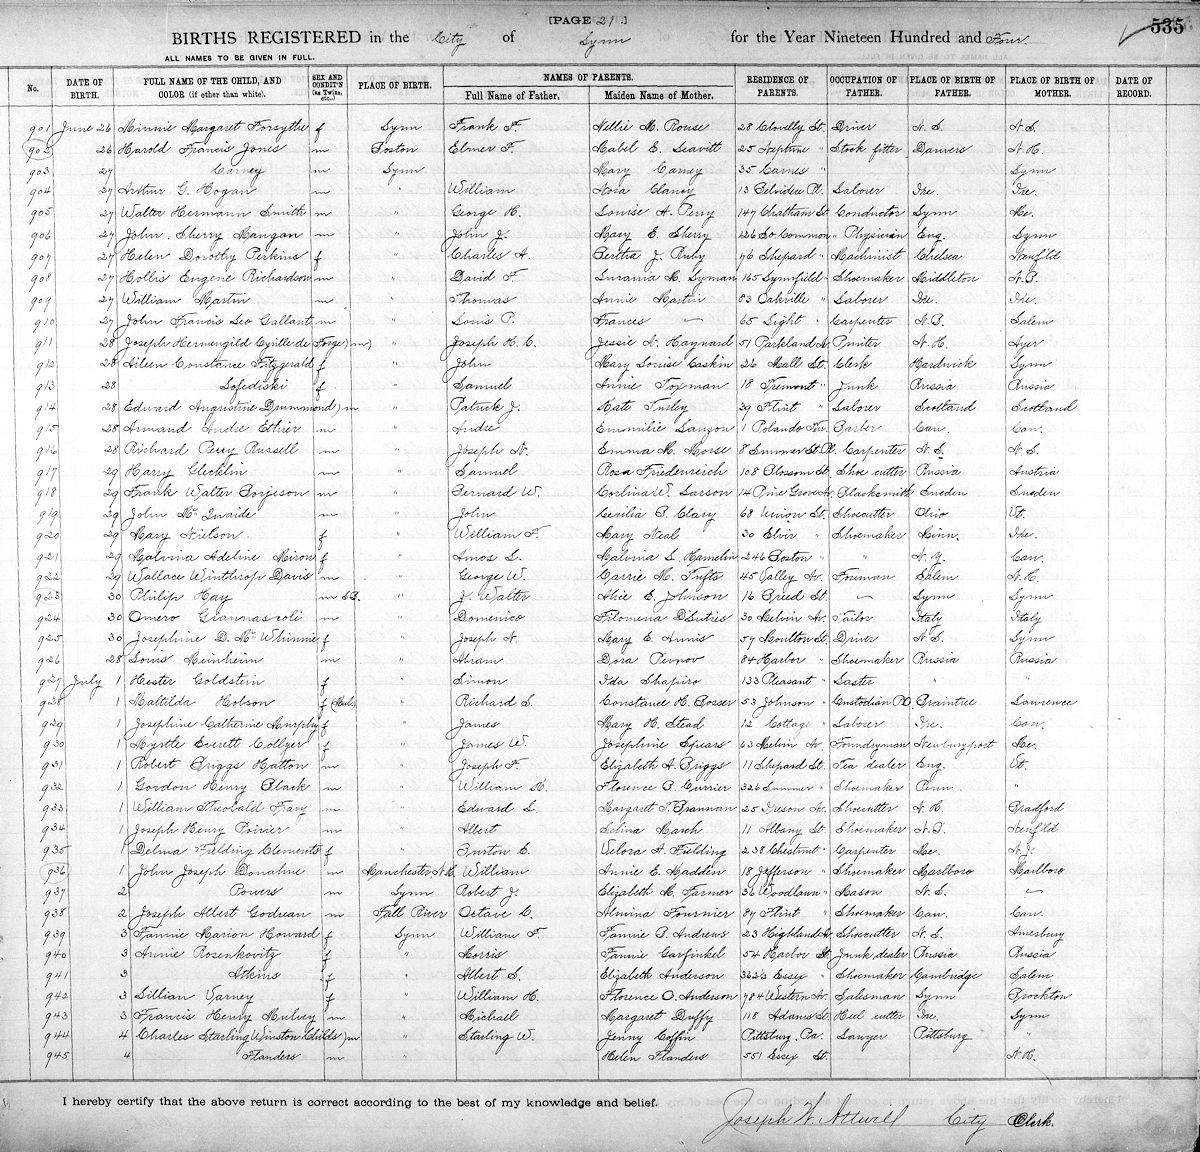 [PAGE 21.]
535
BIRTHS REGISTERED in the City of Lynn for the Year Nineteen Hundred and Four.
ALL NAMES TO BE GIVEN IN FULL.
No. DATE OF BIRTH. FULL NAME OF THE CHILD, AND COLOR (if other than white). SEX AND CONDIT'N (as Twins, etc.,) PLACE OF BIRTH. NAMES OF PARENTS. Full Name of Father. Maiden Name of Mother. RESIDENCE OF PARENTS. OCCUPATION OF FATHER. PLACE OF BIRTH OF FATHER. PLACE OF BIRTH OF MOTHER. DATE OF RECORD.
901 June 26 Minnie Margaret Forsythe f Lynn Frank F. Nellie M. Rouse 28 Clovelly St. Driver N.S. N.S.
902 26 Harold Francis Jones m Boston Elmer F. Mabel E. Leavitt 25 Neptune " Stock fitter Danvers N.H.
903 27 Carney m Lynn Mary Carney 35 Carnes " Lynn
904 27 Arthur G. Hogan m " William Nora Clancy 13 Belvidere Pl. Laborer Ire. Ire.
905 27 Walter Hermann Smith m " George H. Louise A. Perry 147 Chatham St Conductor Lynn Me.
906 27 John Sherry Mangan m " John J. Mary E. Sherry 226 So Common " Physician Eng. Lynn
907 27 Helen Dorothy Perkins f " Charles A. Bertha J. Ruby 76 Shepard " Machinist Chelsea Neufld
908 27 Hollis Eugene Richardson m " David F. Lurania M. Lyman 165 Lynnfield " Shoemaker Middleton N.B.
909 27 William Martin m " Thomas Annie Martin 83 Oakville " Laborer Ire. Ire.
910 27 John Francis Leo Gallant m " Louis P. Frances — 65 Light " Carpenter N.B. Salem
911 28 Joseph Hermengild Cyrille de Forge) m) " Joseph H. C. Jessie N. Haynard 51 Parkland Av Printer N.H. Ayer
912 28 Aileen Constance Fitzgerald f " John Mary Louise Gaskin 26 Mall St. Clerk Hardwick Lynn
913 28 f " Samuel Annie Toxman 18 Tremont " Junk Russia Russia
914 28 Edward Augustine Drummond) m " Patrick J. Kate Turley 39 Flint " Laborer Scotland Scotland
915 28 Armand Andre Ethier m " Andre Emmilie Lauzon 1 Polando Ter. Barber Can. Can.
916 28 Richard Percy Russell m " Joseph N. Emma M. Morse 8 Summer St. Pl. Carpenter N.S. N.S.
917 29 Harry Glecklin m " Samuel Rosa Friedenreich 108 Blossom St. Shoe cutter Russia Austria
918 29 Frank Walter Borjeson m " Bernard W. Carlina W. Larson 14 Pine Grove Av. Blacksmith Sweden Sweden
919 29 John McQuaide m " John Cecilia B. Clary 68 Union St. Shoecutter Ohio Vt.
920 29 Mary Nielson f " William F. Mary Neal 30 " Shoemaker Minn. Ire.
921 29 Malvina Adeline Miron f " Amos L. Malvina L. Hamelin 246 Boston " " N.Y. Can.
922 29 Wallace Winthrop Davis m " George W. Carrie M. Tufts 45 Valley Av. Foreman Salem N.H.
923 30 Philip Hay m S.B. " J. Walter Alice E. Johnson 16 Breed St. — Lynn Lynn
924 30 Omero m " Domenico Filomena 30 Melvin Av. Tailor Italy Italy
925 30 Josephine D. McWhinnie f " Joseph N. Mary E. Annis 57 Moulton St. Driver N.S. Lynn
926 28 Louis Meinheim m " Abram Dora Pernov 84 Harbor " Shoemaker Russia Russia
927 July 1 Hester Goldstein f " Simon Ida Shapiro 133 Pleasant " Laster " "
928 1 Mathilda Hobson f " Richard S. Constance H. Bosser 53 Johnson " Custodian P.O. Braintree Lawrence
929 1 Josephine Catherine Murphy f " James Mary H. Stead 12 Cottage " Laborer Ire. Can.
930 1 Myrtle Everett Collyer f " James W. Josephine Spears 63 Melvin Av. Foundryman Newburyport Me.
931 1 Robert Briggs Hatton m " Joseph F. Elizabeth A. Briggs 11 Shepard St. Tea dealer Eng. Vt.
932 1 Gordon Henry Black m " William H. Florence B. Currier 326 Summer " Shoemaker Penn. "
933 1 William Theobald Frary m " Edward L. Margaret T. Brannan 25 Ireson Av. Shoecutter N.H. Bradford
934 1 Joseph Henry Poirier m " Albert Selina March 11 Albany St. Shoemaker N.B. Neufld
935 1 Delma Fielding Clements f " Burton E. Velora A. Fielding 238 Chestnut " Carpenter Me. N.J.
936 1 John Joseph Donahue m Manchester, N.H. William Annie E. Madden 18 Jefferson " Shoemaker Marlboro Marlboro
937 2 Powers m Lynn Robert J. Elizabeth M. Farmer 36 Woodlawn " Mason N.S. —
938 2 Joseph Albert Godreau m Fall River Octave C. Almina Fournier 87 Flint " Shoemaker Can. Can.
939 3 Fannie Marion Howard f Lynn William F. Fannie B. Andrews 23 Highland Av Shoecutter N.S. Amesbury
940 3 Annie Rosenkovitz f " Morris Fannie Garfinkel 54 Harbor St. Junk dealer Russia Russia
941 3 Atkins f " Albert S. Elizabeth Anderson 363½ Essex " Shoemaker Cambridge Salem
942 3 Lillian Varney f " William H. Florence O. Anderson 784 Western Av. Salesman Lynn Brockton
943 3 Francis Henry Mulvey m " Michael Margaret Duffy 118 Adams St. Heel cutter Ire. Lynn
944 4 Charles Starling Winston Childs) m " Starling W. Jenny Coffin Pittsburg, Pa. Lawyer Pittsburg "
945 4 Flanders m " Helen Flanders 551 Essex St. N.H.
I hereby certify that the above return is correct according to the best of my knowledge and belief.
Joseph W. Attwill City Clerk.